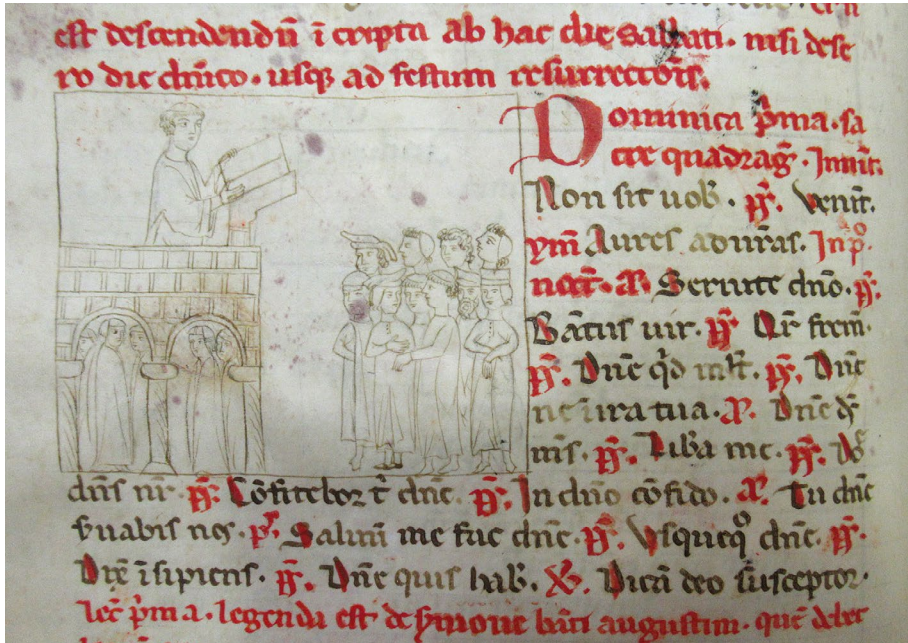 est descendendū ī cripta ab hac die sabbati. nisi dese
ro die dn̄ico. usq; ad festum resurrectōis.
Dominica p̄ma. sa
cre quadraḡ. Inuit.
Non sit uob. p̄s. Venit.
ym̄ Aures ad nr̄as. In p̄º.
noct. a. Seruite dn̄o. p̄s.
Bātus uir. p̄s. Qr̄ frem.
p̄s. Dn̄e qͥd ml̄t. p̄s. Dn̄e
ne in ira tua. a. Dn̄e ds̄
ms̄. p̄s. Liba me. p̄s.
dn̄s nr̄. p̄s. Cōfitebor t̄ dn̄e. p̄s. In dn̄o cōfido. a. Tu dn̄e
s̄uabis nos. p̄s. Saluū me fac dn̄e. p̄s. Vsqueqº dn̄e. p̄s.
Dix̄ īsipiens. p̄s. Dn̄e quis hab. ꝟ. Dicā deo susceptor.
lec̄ p̄ma. legenda est de s̄mone bāti augustini. que debet